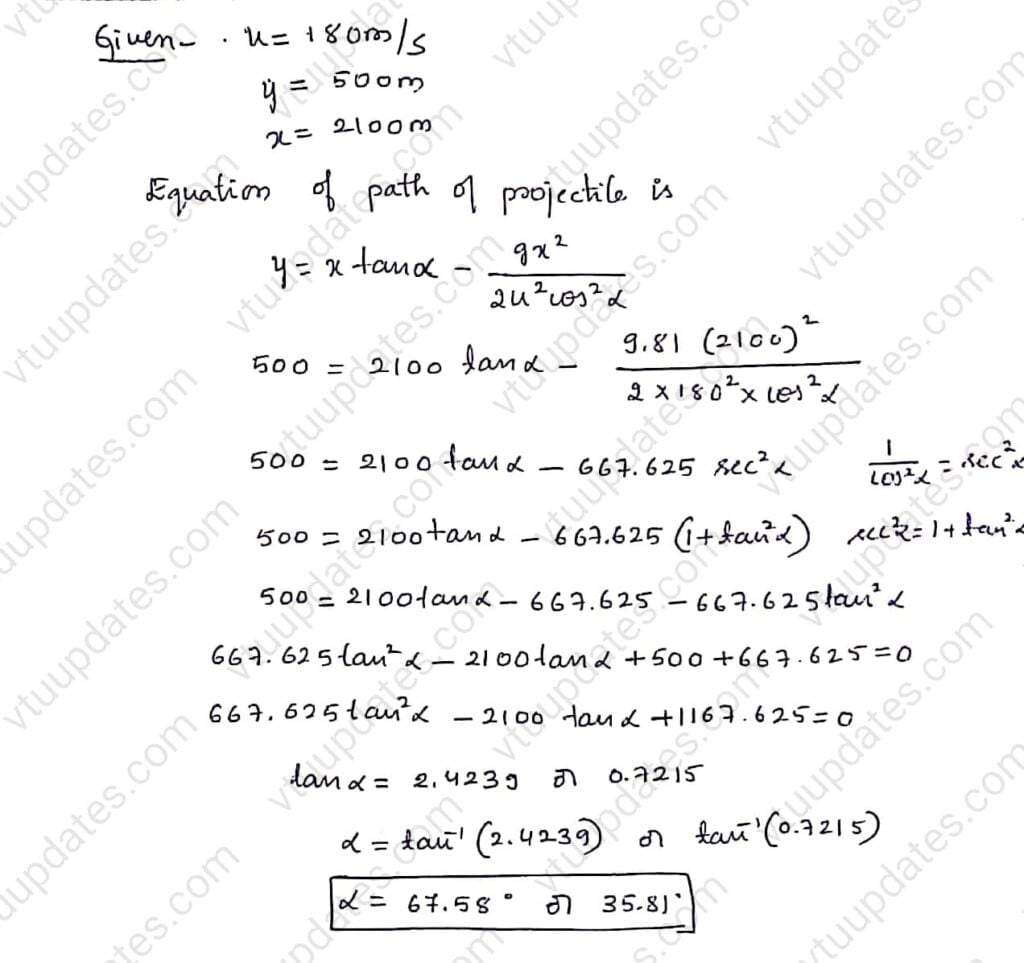 Given - . u = 180m/s
y = 500m
x = 2100m
Equation of path of projectile is
y = x tanα - gx² / 2u²cos²α
500 = 2100 tanα - 9.81 (2100)² / 2 × 180² × cos²α
500 = 2100 tanα - 667.625 sec²α    1/cos²α = sec²α
500 = 2100 tanα - 667.625 (1 + tan²α)    sec²α = 1 + tan²α
500 = 2100 tanα - 667.625 - 667.625 tan²α
667.625 tan²α - 2100 tanα + 500 + 667.625 = 0
667.625 tan²α - 2100 tanα + 1167.625 = 0
tanα = 2.4239 or 0.7215
α = tan⁻¹(2.4239) or tan⁻¹(0.7215)
α = 67.58° or 35.81°
vtuupdates.com